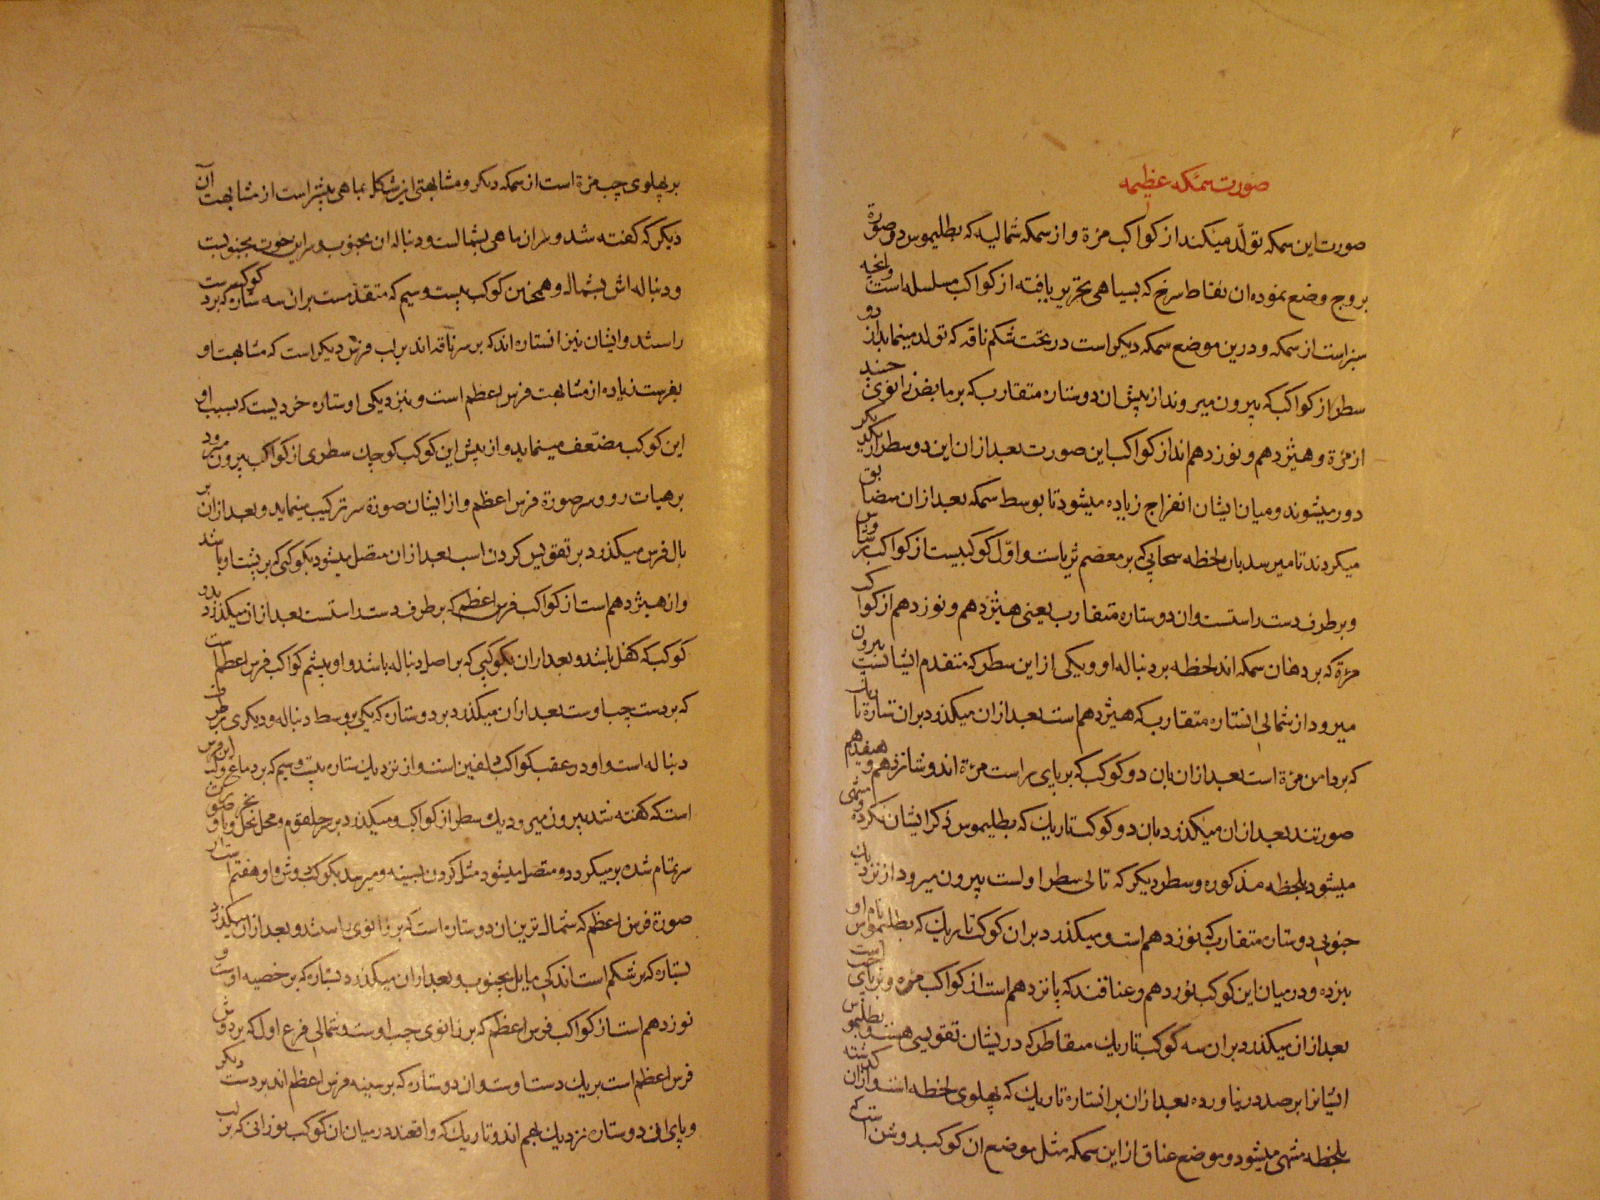 صورت سمکه عظیمه
صورت این سمکه تولّد میکند از کواکب مرٔة و از سمکه شمالیه که بطلیموس در صورة
بروج وضع نموده ان نقاط سرخ که بسیاهی تحریر یافته از کواکب سلسله است وانچه
سبز است از سمکه و درین موضع سمکه دیکر است در تحت شکم ناقه که تولد مینماید از دو
سطر از کواکب که بیرون میروند از پیش ان دو ستاره متقارب که بر
از مرٔة و هیژدهم و نوزدهم اند از کواکب این صورت بعد از ان این دو سطر از یکدیکر
دور میشوند و میان ایشان انفراج زیاده میشود تا بوسط سمکه بعد از ان متضایق
میکردند تا میرسد بان لطخه سحابی که بر معصم ثریاست و اوّل کوکبیست از کواکب برشاوس
و بر طرف دست راستست و ان دو ستاره متقارب یعنی هیژدهم و نوزدهم از کواکب
مرٔة که بر دهان سمکه اند لطخه بر دنباله او و یکی از این سطر که متقدم ایشانست بیرون
میرود از شمالی انستاره متقارب که هیژدهم است بعد از ان میکذرد بران ستارة تاریک
که بر دامن مرٔة است بعد از ان بان دو کوکب که بر پای راست مرٔة اند و شانزدهم و هفدهم
صورتند بعد از ان میکذرد بان دو کوکب تاریک که بطلیموس ذکر ایشان نکرده و منتهی
میشود بلطخه مذکوره و سطر دیکر که تالی سطر اولست بیرون میرود از نزدیک
جنوبی دو ستاره متقارب که نوزدهم است و میکذرد بران کوکب تاریک که بطلیموس نام او
نبرده و در میان این کوکب نوزدهم و عناقند که پانزدهم است از کواکب مرٔه و بر پای است
بعد از ان میکذرد بران سه کوکب تاریک متقاطر که دریشان تقویسی هست و بطلیموس
ایشانرا برصد در نیاورده بعد از ان بر انستاره تاریک که پهلوی لطخه است و از ان کذشته
بلطخه منتهی میشود و موضع عناق از این سمکه مثل موضع ان کوکب روشن است که
بر پهلوی چپ مرٔة است از سمکه دیکر و مشابهتی این شکل بماهی بیشتر است از مشابهت آن
دیکر که کفته شد و سر ان ماهی بشمالست و دنباله ان بجنوب و سر این حوت بجنوبست
و دنباله اش بشمال و همچنین کوکب بیست و سیم که متقدمست بران سه ستاره که بر کوکبست
راسشد و ایشان نیز انستاره اند که بر سر ناقه اند بر لب فرس دیکر است که مشابهت او
بفرس زیاده از مشابهت فرس اعظم است و بنزدیکی او ستاره خردیست که بسبب او
این کوکب مضعّف مینماید و از پیش این کوکب کوچک سطری از کواکب بیرون میرود
بر هیات رو و سر صورة فرس اعظم و از ایشان صورة سر ترکیب مینماید و بعد از ان بر
یال فرس میکذرد بر تقویس کردن اسب بعد از ان متصل میشود بکوکبی که بر پشت او باشد
و ان هیژدهم است از کواکب فرس اعظم که بر طرف دست راستست بعد از ان میکذرد بدو
کوکب که کفل باشد و بعد از ان بکوکبی که بر اصل دنباله باشد و او بیستم کواکب فرس اعظم است
که بر دست چپ اوست بعد از ان میکذرد بر دو ستاره که یکی بر وسط دنباله و دیکری بر طرف
دنباله است و او در عقب کواکب دلفین است و از نزدیک ستاره بیست و سیم که بر دماغ این فرس
است که کفته شد بیرون میرود یک سطر از کواکب و میکذرد بر حلقوم و محل نحر
سر تمام شده بر میکردد و متصل میشود مثل کردن بسینه و میرسد بکوکب روشن و او هفتم است از
صورة فرس اعظم که شمالی ترین ان دو ستاره است که بر زانوی راستند و بعد از ان میکذرد
بستاره که بر شکم است اندکی مایل بجنوب و بعد از ان میکذرد بستاره که بر خصیه اوست و
نوزدهم است از کواکب فرس اعظم که بر زانوی چپ اوست و شمالی فرع اول که بر دوش
فرس اعظم است بر یک دست اوست و ان دو ستاره که بر سینه فرس اعظم اند بر دست دیکر
و پای اند و ستاره نزدیک بهم اند و تاریک که واقعند در میان ان کوکب نورانی که بر لب